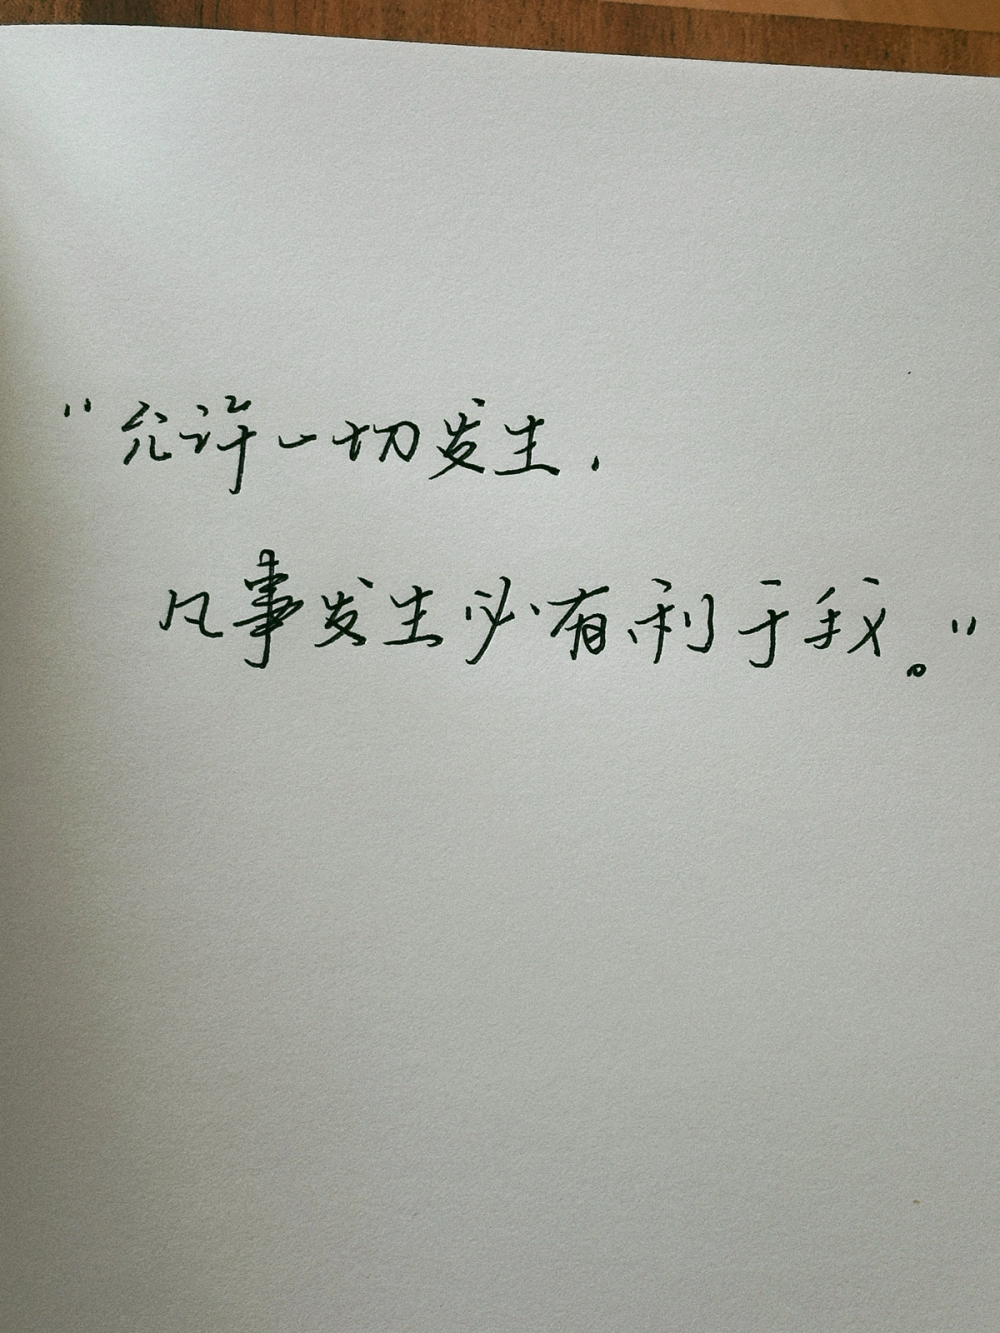 “允许一切发生，
凡事发生必有利于我。”